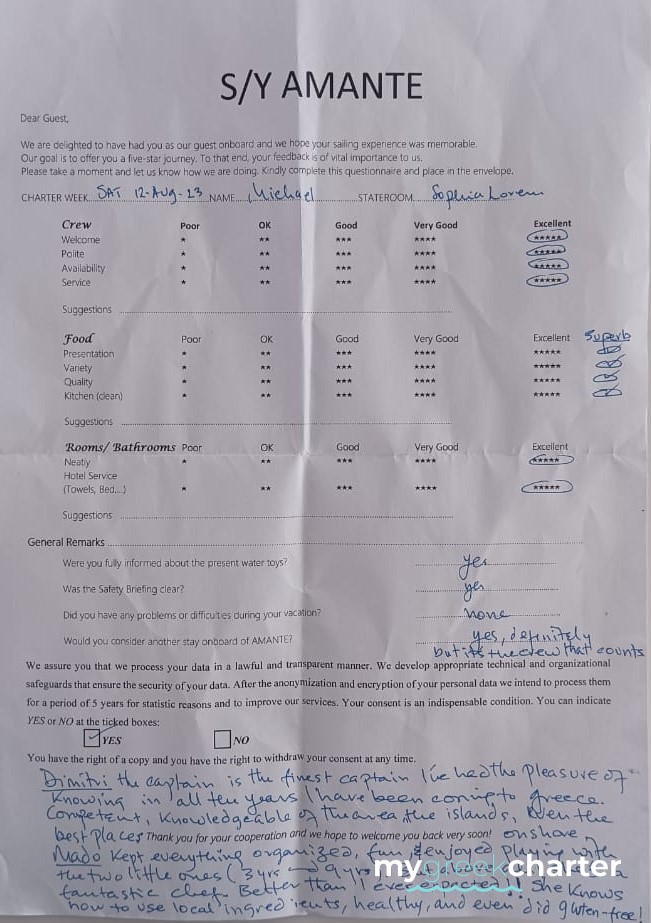 S/Y AMANTE
Dear Guest,
We are delighted to have had you as our guest onboard and we hope your sailing experience was memorable.
Our goal is to offer you a five-star journey. To that end, your feedback is of vital importance to us.
Please take a moment and let us know how we are doing. Kindly complete this questionnaire and place in the envelope.
CHARTER WEEK SAT 12-AUG-23 NAME Michael STATEROOM Sophia Loren
Crew Poor OK Good Very Good Excellent
Welcome * ** *** **** *****
Polite * ** *** **** *****
Availability * ** *** **** *****
Service * ** *** **** *****
Suggestions
Food Poor OK Good Very Good Excellent Superb
Presentation * ** *** **** *****
Variety * ** *** **** *****
Quality * ** *** **** *****
Kitchen (clean) * ** *** **** *****
Suggestions
Rooms/ Bathrooms Poor OK Good Very Good Excellent
Neatly * ** *** **** *****
Hotel Service
(Towels, Bed,...) * ** *** **** *****
Suggestions
General Remarks
Were you fully informed about the present water toys? yes
Was the Safety Briefing clear? yes
Did you have any problems or difficulties during your vacation? none
Would you consider another stay onboard of AMANTE? yes, definitely
but its the crew that counts
We assure you that we process your data in a lawful and transparent manner. We develop appropriate technical and organizational
safeguards that ensure the security of your data. After the anonymization and encryption of your personal data we intend to process them
for a period of 5 years for statistic reasons and to improve our services. Your consent is an indispensable condition. You can indicate
YES or NO at the ticked boxes:
YES NO
You have the right of a copy and you have the right to withdraw your consent at any time.
Dimitri the captain is the finest captain I've had the pleasure of
knowing in all ten years I have been coming to greece.
Competent, Knowledgeable of the area, the islands, even the
best places Thank you for your cooperation and we hope to welcome you back very soon! onshore
Mado Kept everything organized, fun, enjoyed playing with
the two little ones (3yrs 9yrs
mygreekcharter
fantastic chef. Better than I ever She Knows
how to use local ingredients, healthy, and even did gluten-free!